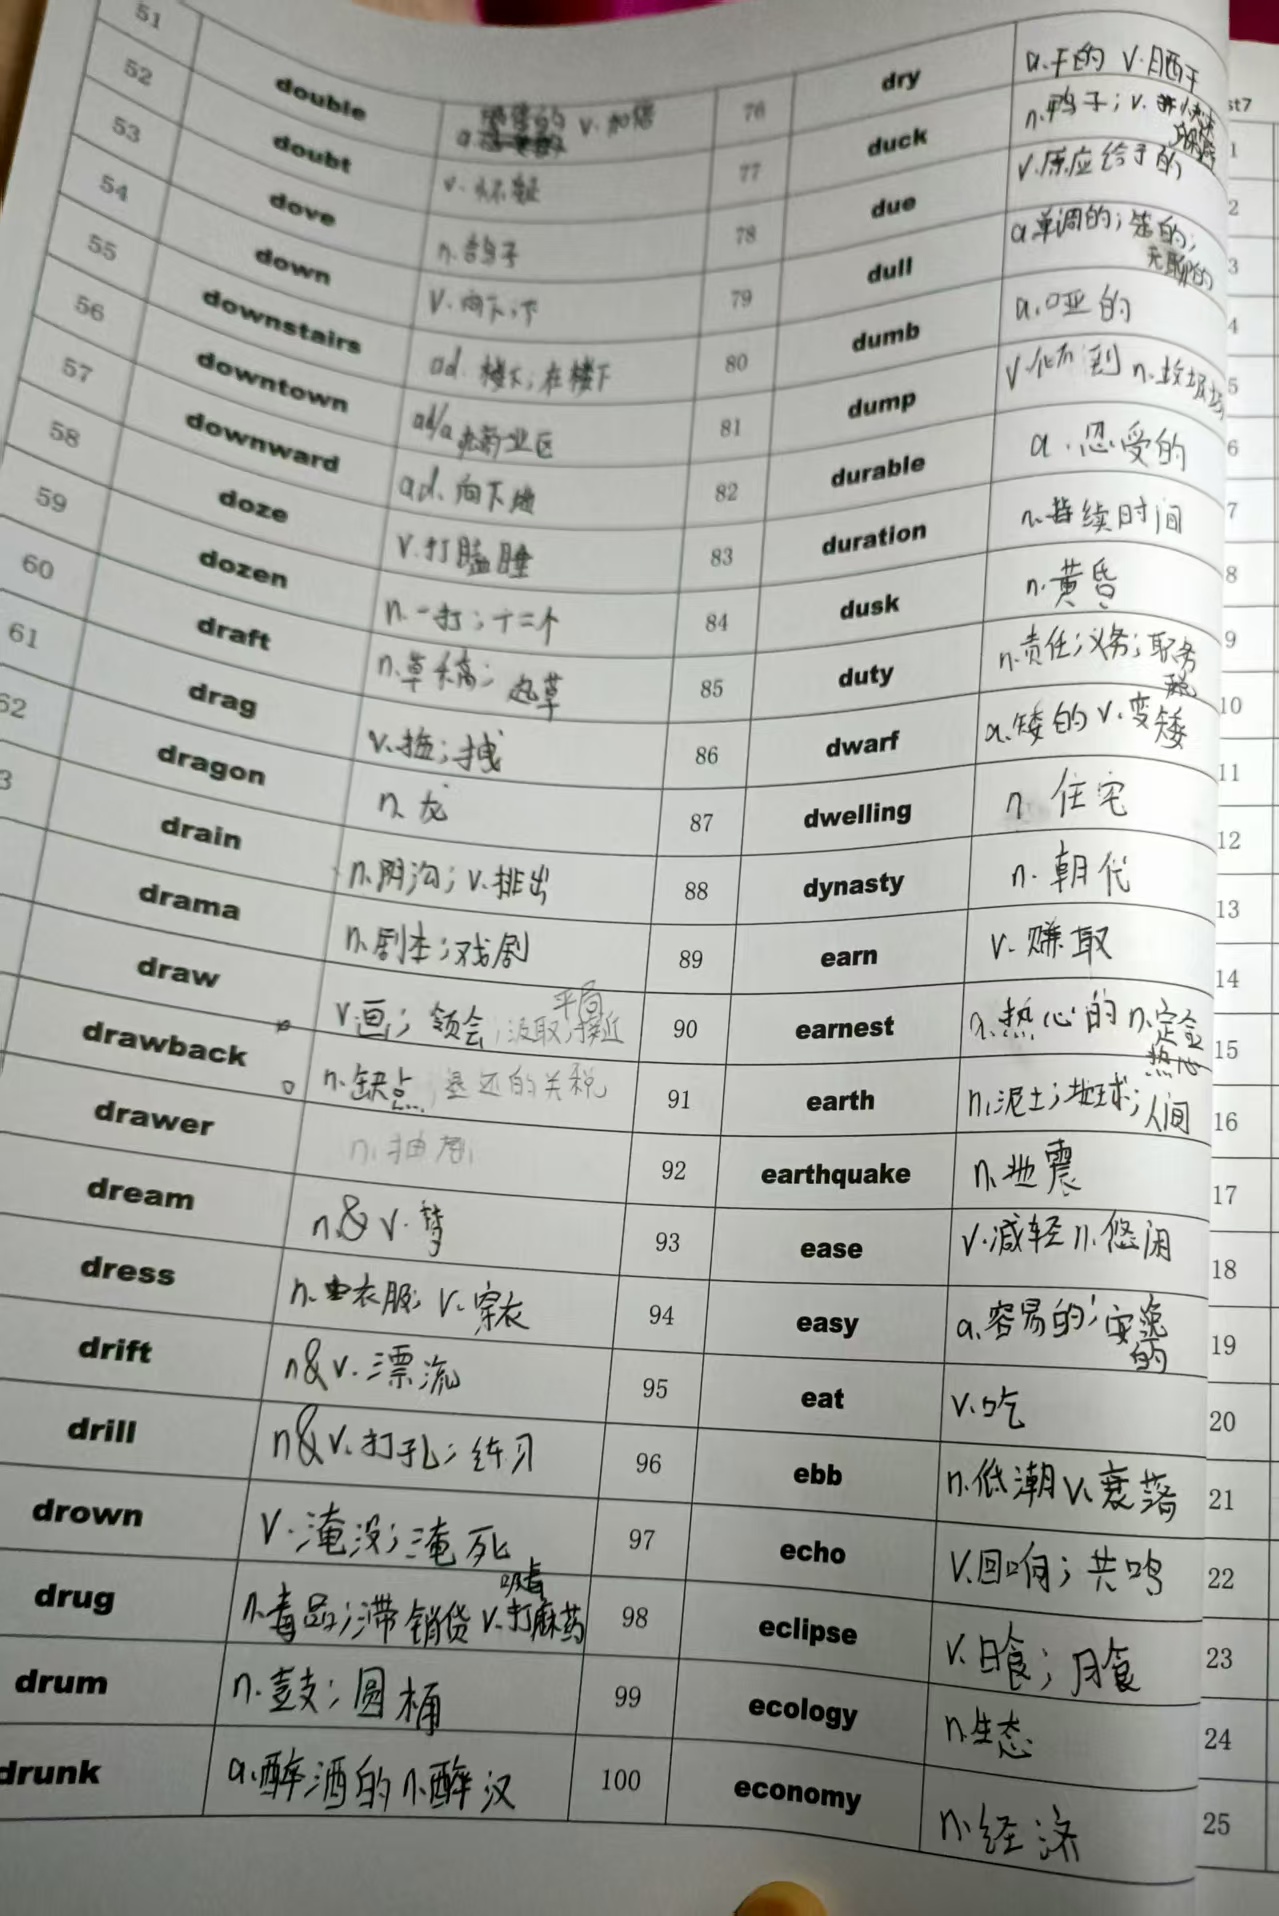 51 double a. v. 加倍 76 dry a.干的 v.晒干
52 doubt v. 怀疑 77 duck n.鸭子; v.
53 dove n.鸽子 78 due v.原应给予的
54 down v. 向下,下 79 dull a.单调的; 笨的; 无聊的
55 downstairs ad. 楼下; 在楼下 80 dumb a.哑的
56 downtown ad/a 商业区 81 dump v. n.垃圾场
57 downward ad. 向下地 82 durable a.忍受的
58 doze v.打瞌睡 83 duration n.持续时间
59 dozen n.一打; 十二个 84 dusk n.黄昏
60 draft n.草稿; 起草 85 duty n.责任; 义务; 职务 税
61 drag v.拖; 拽 86 dwarf a.矮的 v.变矮
62 dragon n.龙 87 dwelling n.住宅
3 drain n.阴沟; v.排出 88 dynasty n.朝代
drama n.剧本; 戏剧 89 earn v.赚取
draw v.画; 领会; 汲取; 接近 平局 90 earnest a.热心的 n.定金 热心
drawback n.缺点; 退还的关税 91 earth n.泥土; 地球; 人间
drawer n.抽屉 92 earthquake n.地震
dream n.& v.梦 93 ease v.减轻 n.悠闲
dress n.衣服; v.穿衣 94 easy a.容易的; 安逸的
drift n&v.漂流 95 eat v.吃
drill n&v.打孔; 练习 96 ebb n.低潮 v.衰落
drown v.淹没; 淹死 97 echo v.回响; 共鸣
drug n.毒品; 滞销货 v.打麻药 吸毒 98 eclipse v.日食; 月食
drum n.鼓; 圆桶 99 ecology n.生态
drunk a.醉酒的 n.醉汉 100 economy n.经济
st7
1
2
3
4
5
6
7
8
9
10
11
12
13
14
15
16
17
18
19
20
21
22
23
24
25